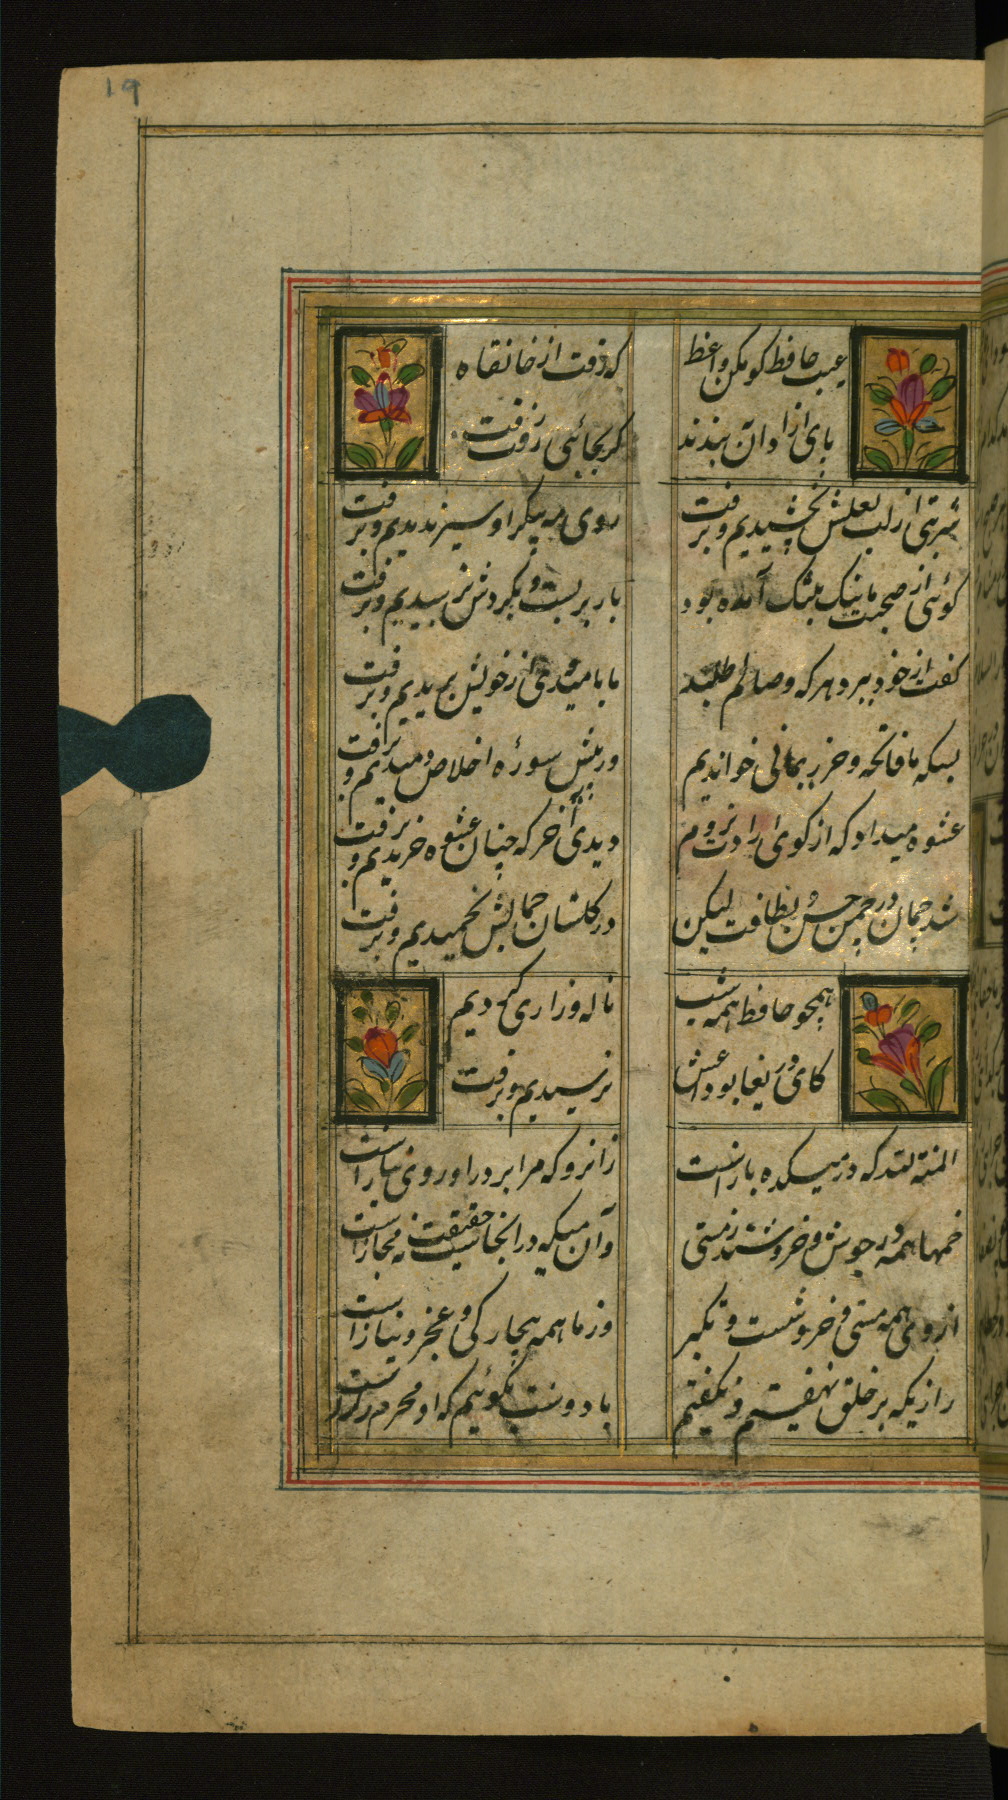 19
عیب حافظ کو مکن واعظ
که رفت از خانقاه
پای ازادان نبندند
گر بجائی رفت رفت
شربتی از لب لعلش نچشیدیم و برفت
روی مه پیکر او سیر ندیدیم و برفت
گوئی از صحبت ما نیک بتنک آمده بود
بار بر بست و بگردش نرسیدیم و برفت
گفت از خود ببرد هر که وصالم طلبد
ما بامید وی از خویش بریدیم و برفت
بسکه ما فاتحه و حرز یمانی خواندیم
ور پیش سورهٔ اخلاص دمیدیم و برفت
عشوه میداد که از کوی ارادت نروم
دیدی آخر که چنان عشوه خریدیم و برفت
شد چمان در چمن حسن لطافت لیکن
در گلستان جمالش نچمیدیم و برفت
همچو حافظ همه شب
ناله و زاری کردیم
کای دریغا بوداعش
نرسیدیم و برفت
المنة لله که در میکده باز است
زانرو که مرا بر در او روی نیاز است
خمها همه در جوش و خروشند ز مستی
وان می که در انجاست حقیقت نه مجاز است
از وی همه مستی و خروشست و تکبر
وز ما همه بیچارگی و عجز و نیاز است
رازیکه بر خلق نهفتیم و نگفتیم
با دوست بگوئیم که او محرم راز است